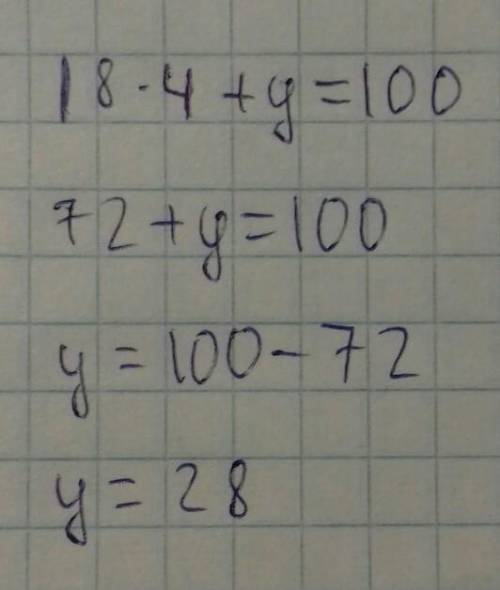 18·4+y=100
72+y=100
y=100-72
y=28